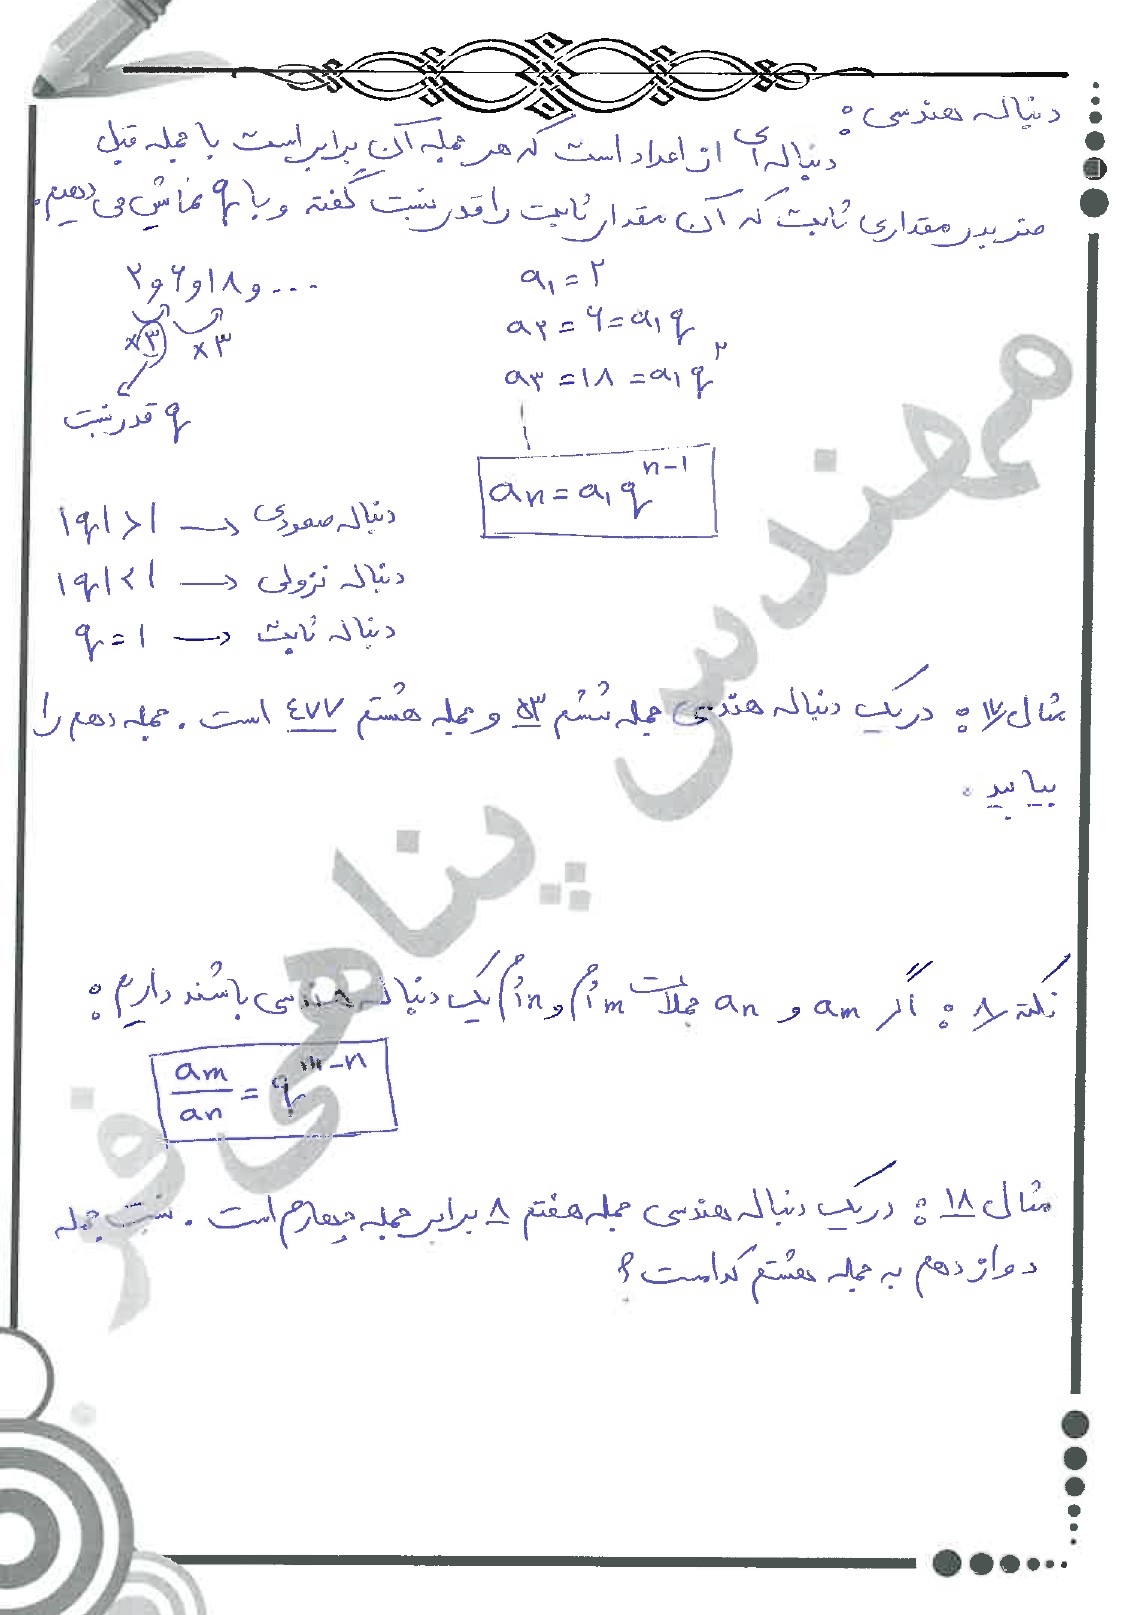 دنباله هندسی :
دنباله‌ای از اعداد است که هر جمله آن برابر است با جمله قبل
ضربدر مقداری ثابت که آن مقدار ثابت را قدر نسبت گفته و با q نمایش می‌دهیم.
۲ و ۶ و ۱۸ و ...
×۳ ×۳
q قدر نسبت
a₁ = ۲
a₂ = ۶ = a₁q
a₃ = ۱۸ = a₁q²
aₙ = a₁qⁿ⁻¹
|q| > ۱ → دنباله صعودی
|q| < ۱ → دنباله نزولی
q = ۱ → دنباله ثابت
مثال ۱۷ : در یک دنباله هندسی جمله ششم ۵۳ و جمله هشتم ۴۷۷ است . جمله دهم را
بیابید .
نکته ۸ : اگر aₘ و aₙ جملات mاُم و nاُم یک دنباله هندسی باشند داریم :
aₘ/aₙ = qᵐ⁻ⁿ
مثال ۱۸ : در یک دنباله هندسی جمله هفتم ۸ برابر جمله چهارم است . نسبت جمله
دوازدهم به جمله هشتم کدامست ؟
مهندس پناهی فر